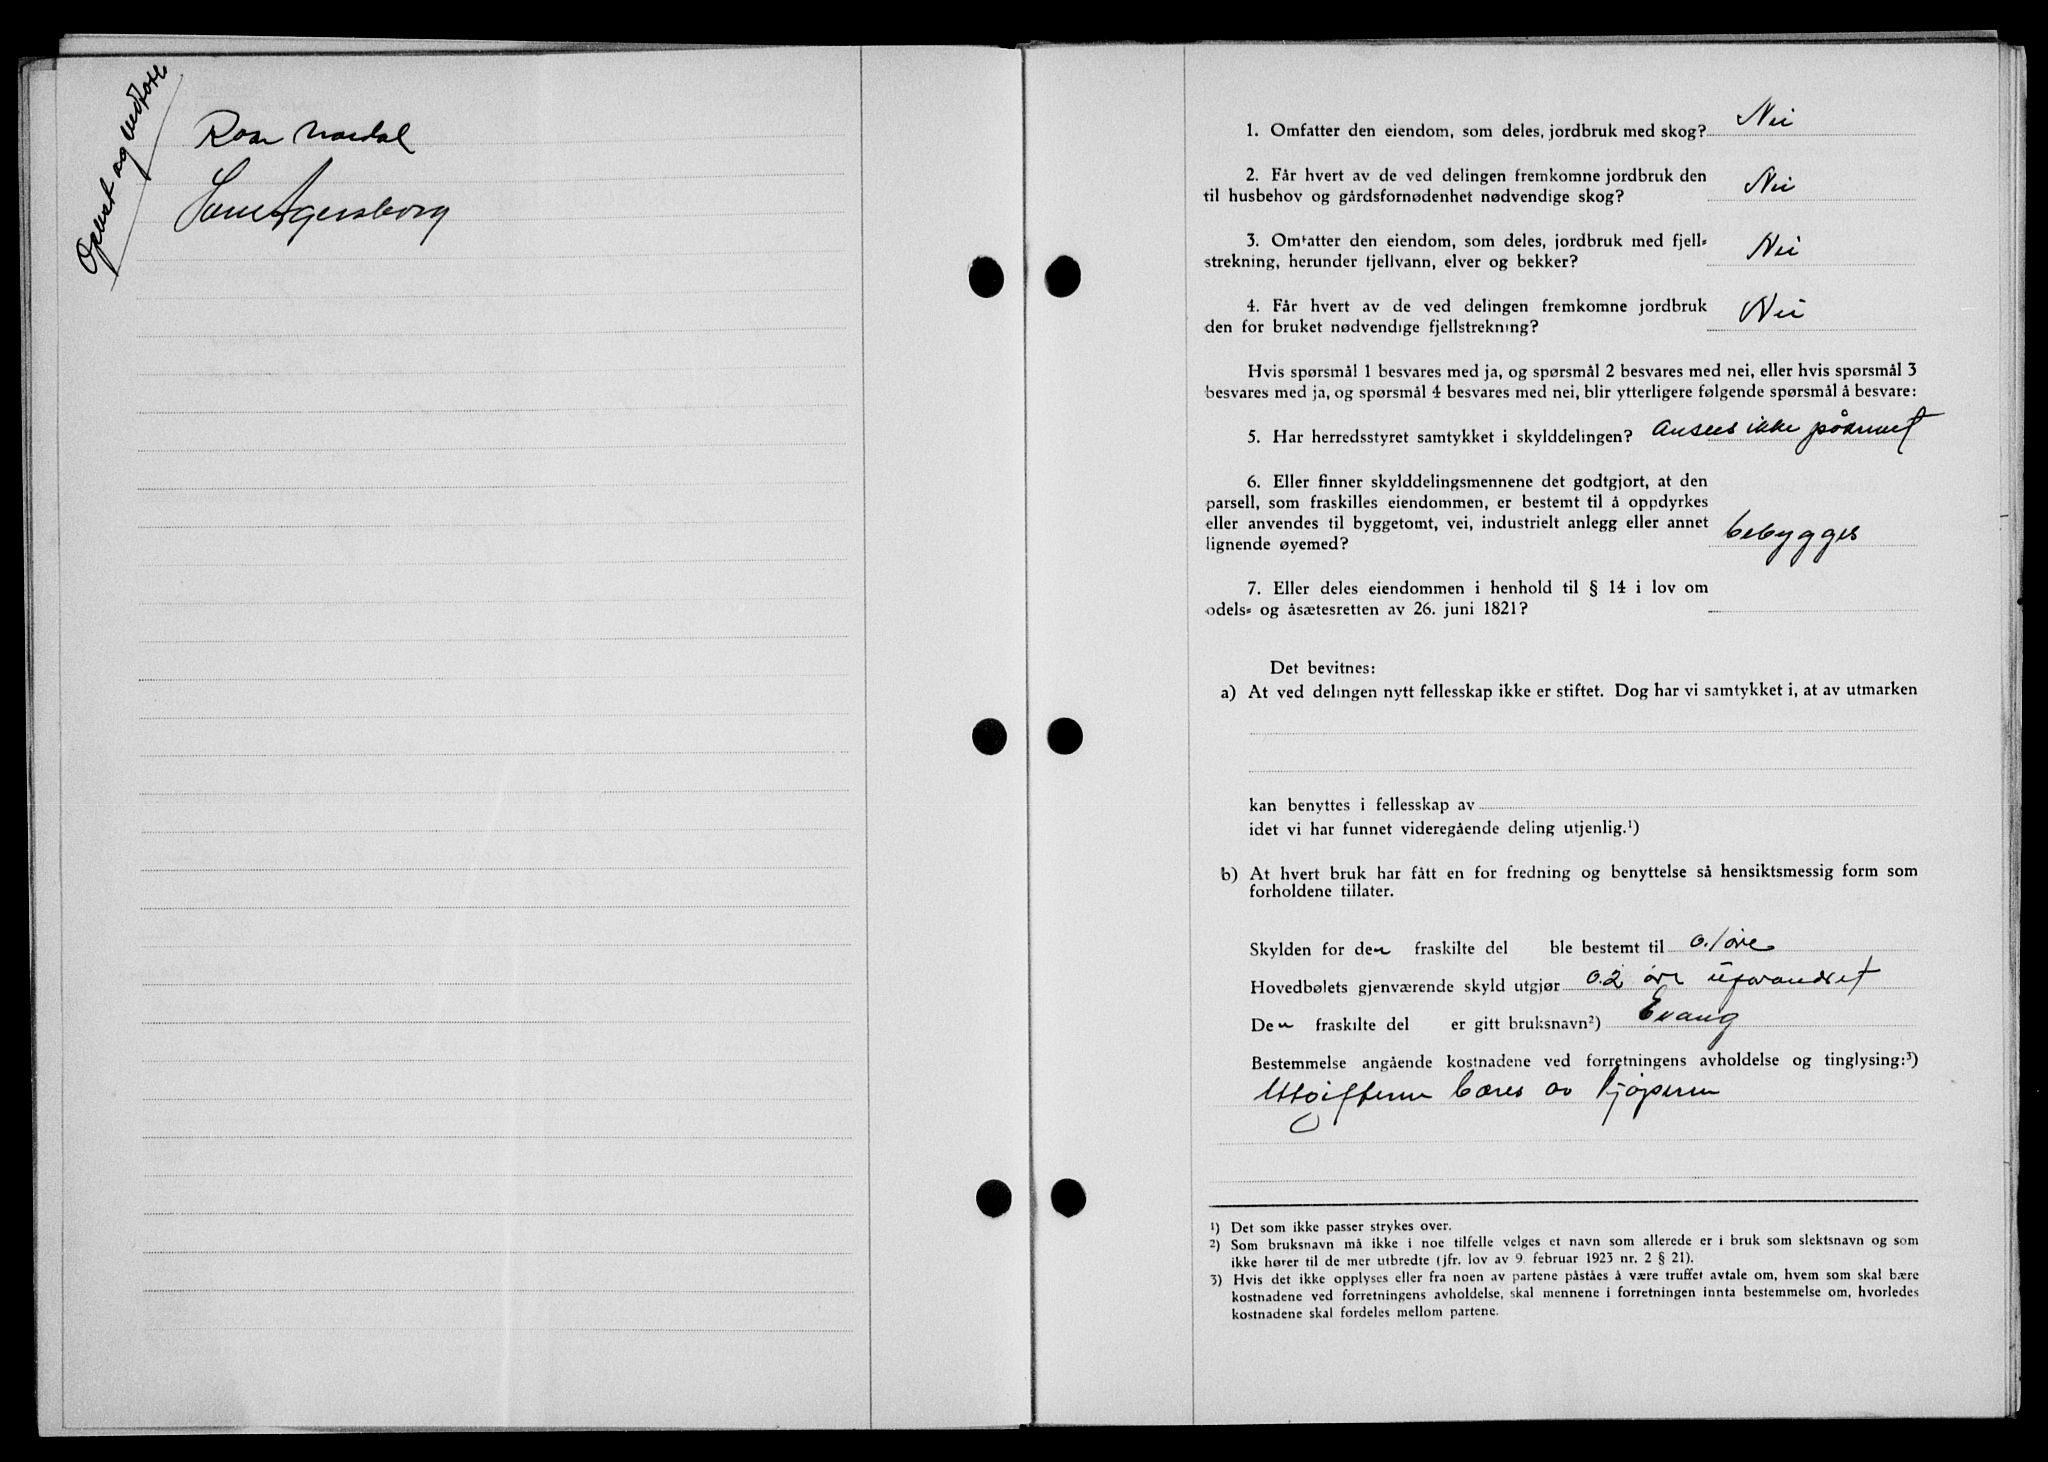 Oplest og vedtatt
Roar Nordal
Agersborg
1. Omfatter den eiendom, som deles, jordbruk med skog? Nei
2. Får hvert av de ved delingen fremkomne jordbruk den
til husbehov og gårdsfornødenhet nødvendige skog? Nei
3. Omfatter den eiendom, som deles, jordbruk med fjell=
strekning, herunder fjellvann, elver og bekker? Nei
4. Får hvert av de ved delingen fremkomne jordbruk
den for bruket nødvendige fjellstrekning? Nei
Hvis spørsmål 1 besvares med ja, og spørsmål 2 besvares med nei, eller hvis spørsmål 3
besvares med ja, og spørsmål 4 besvares med nei, blir ytterligere følgende spørsmål å besvare:
5. Har herredsstyret samtykket i skylddelingen? Ansees ikke påkrevet
6. Eller finner skylddelingsmennene det godtgjort, at den
parsell, som fraskilles eiendommen, er bestemt til å oppdyrkes
eller anvendes til byggetomt, vei, industrielt anlegg eller annet
lignende øyemed? bebygges
7. Eller deles eiendommen i henhold til § 14 i lov om
odels= og åsætesretten av 26. juni 1821?
Det bevitnes:
a) At ved delingen nytt fellesskap ikke er stiftet. Dog har vi samtykket i, at av utmarken
kan benyttes i fellesskap av
idet vi har funnet videregående deling utjenlig.¹)
b) At hvert bruk har fått en for fredning og benyttelse så hensiktsmessig form som
forholdene tillater.
Skylden for den fraskilte del ble bestemt til 0.1 øre
Hovedbølets gjenværende skyld utgjør 0.2 øre uforandret
Den fraskilte del er gitt bruksnavn²) Evang
Bestemmelse angående kostnadene ved forretningens avholdelse og tinglysing:³)
Utgiftene bæres av kjøperen
¹) Det som ikke passer strykes over.
²) Som bruksnavn må ikke i noe tilfelle velges et navn som allerede er i bruk som slektsnavn og som
ikke hører til de mer utbredte (jfr. lov av 9. februar 1923 nr. 2 § 21).
³) Hvis det ikke opplyses eller fra noen av partene påståes å være truffet avtale om, hvem som skal bære
kostnadene ved forretningens avholdelse, skal mennene i forretningen innta bestemmelse om, hvorledes
kostnadene skal fordeles mellom partene.